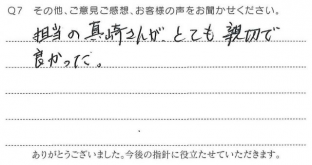 Q7 その他、ご意見ご感想、お客様の声をお聞かせください。
担当の真崎さんが、とても親切で
良かった。
ありがとうございました。今後の指針に役立たせていただきます。